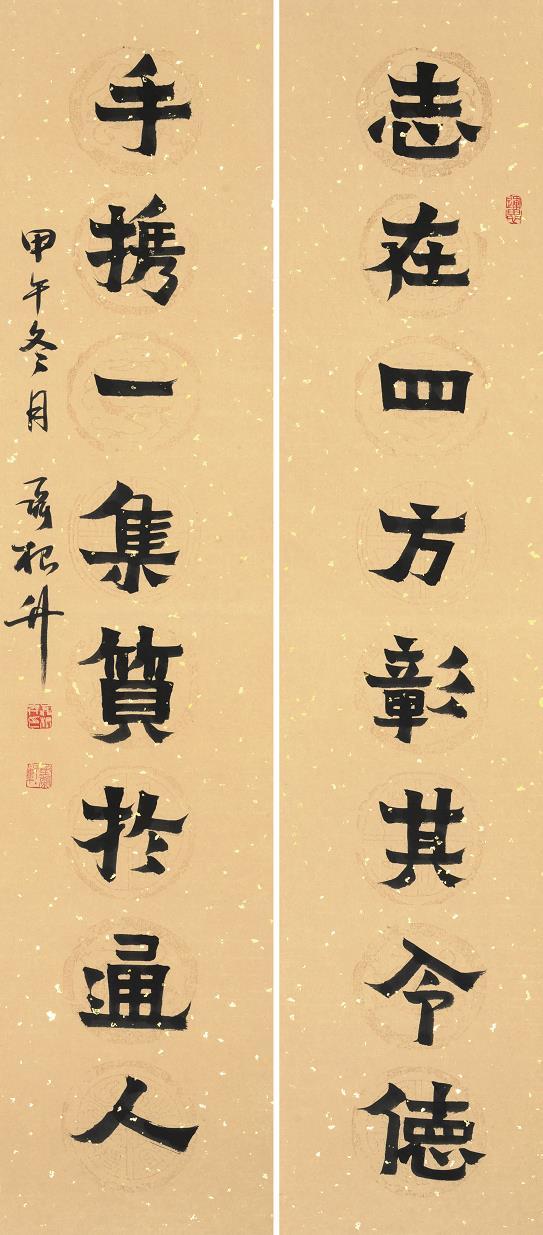 志在四方彰其令德
手携一集質於通人
甲午冬月 聂根升